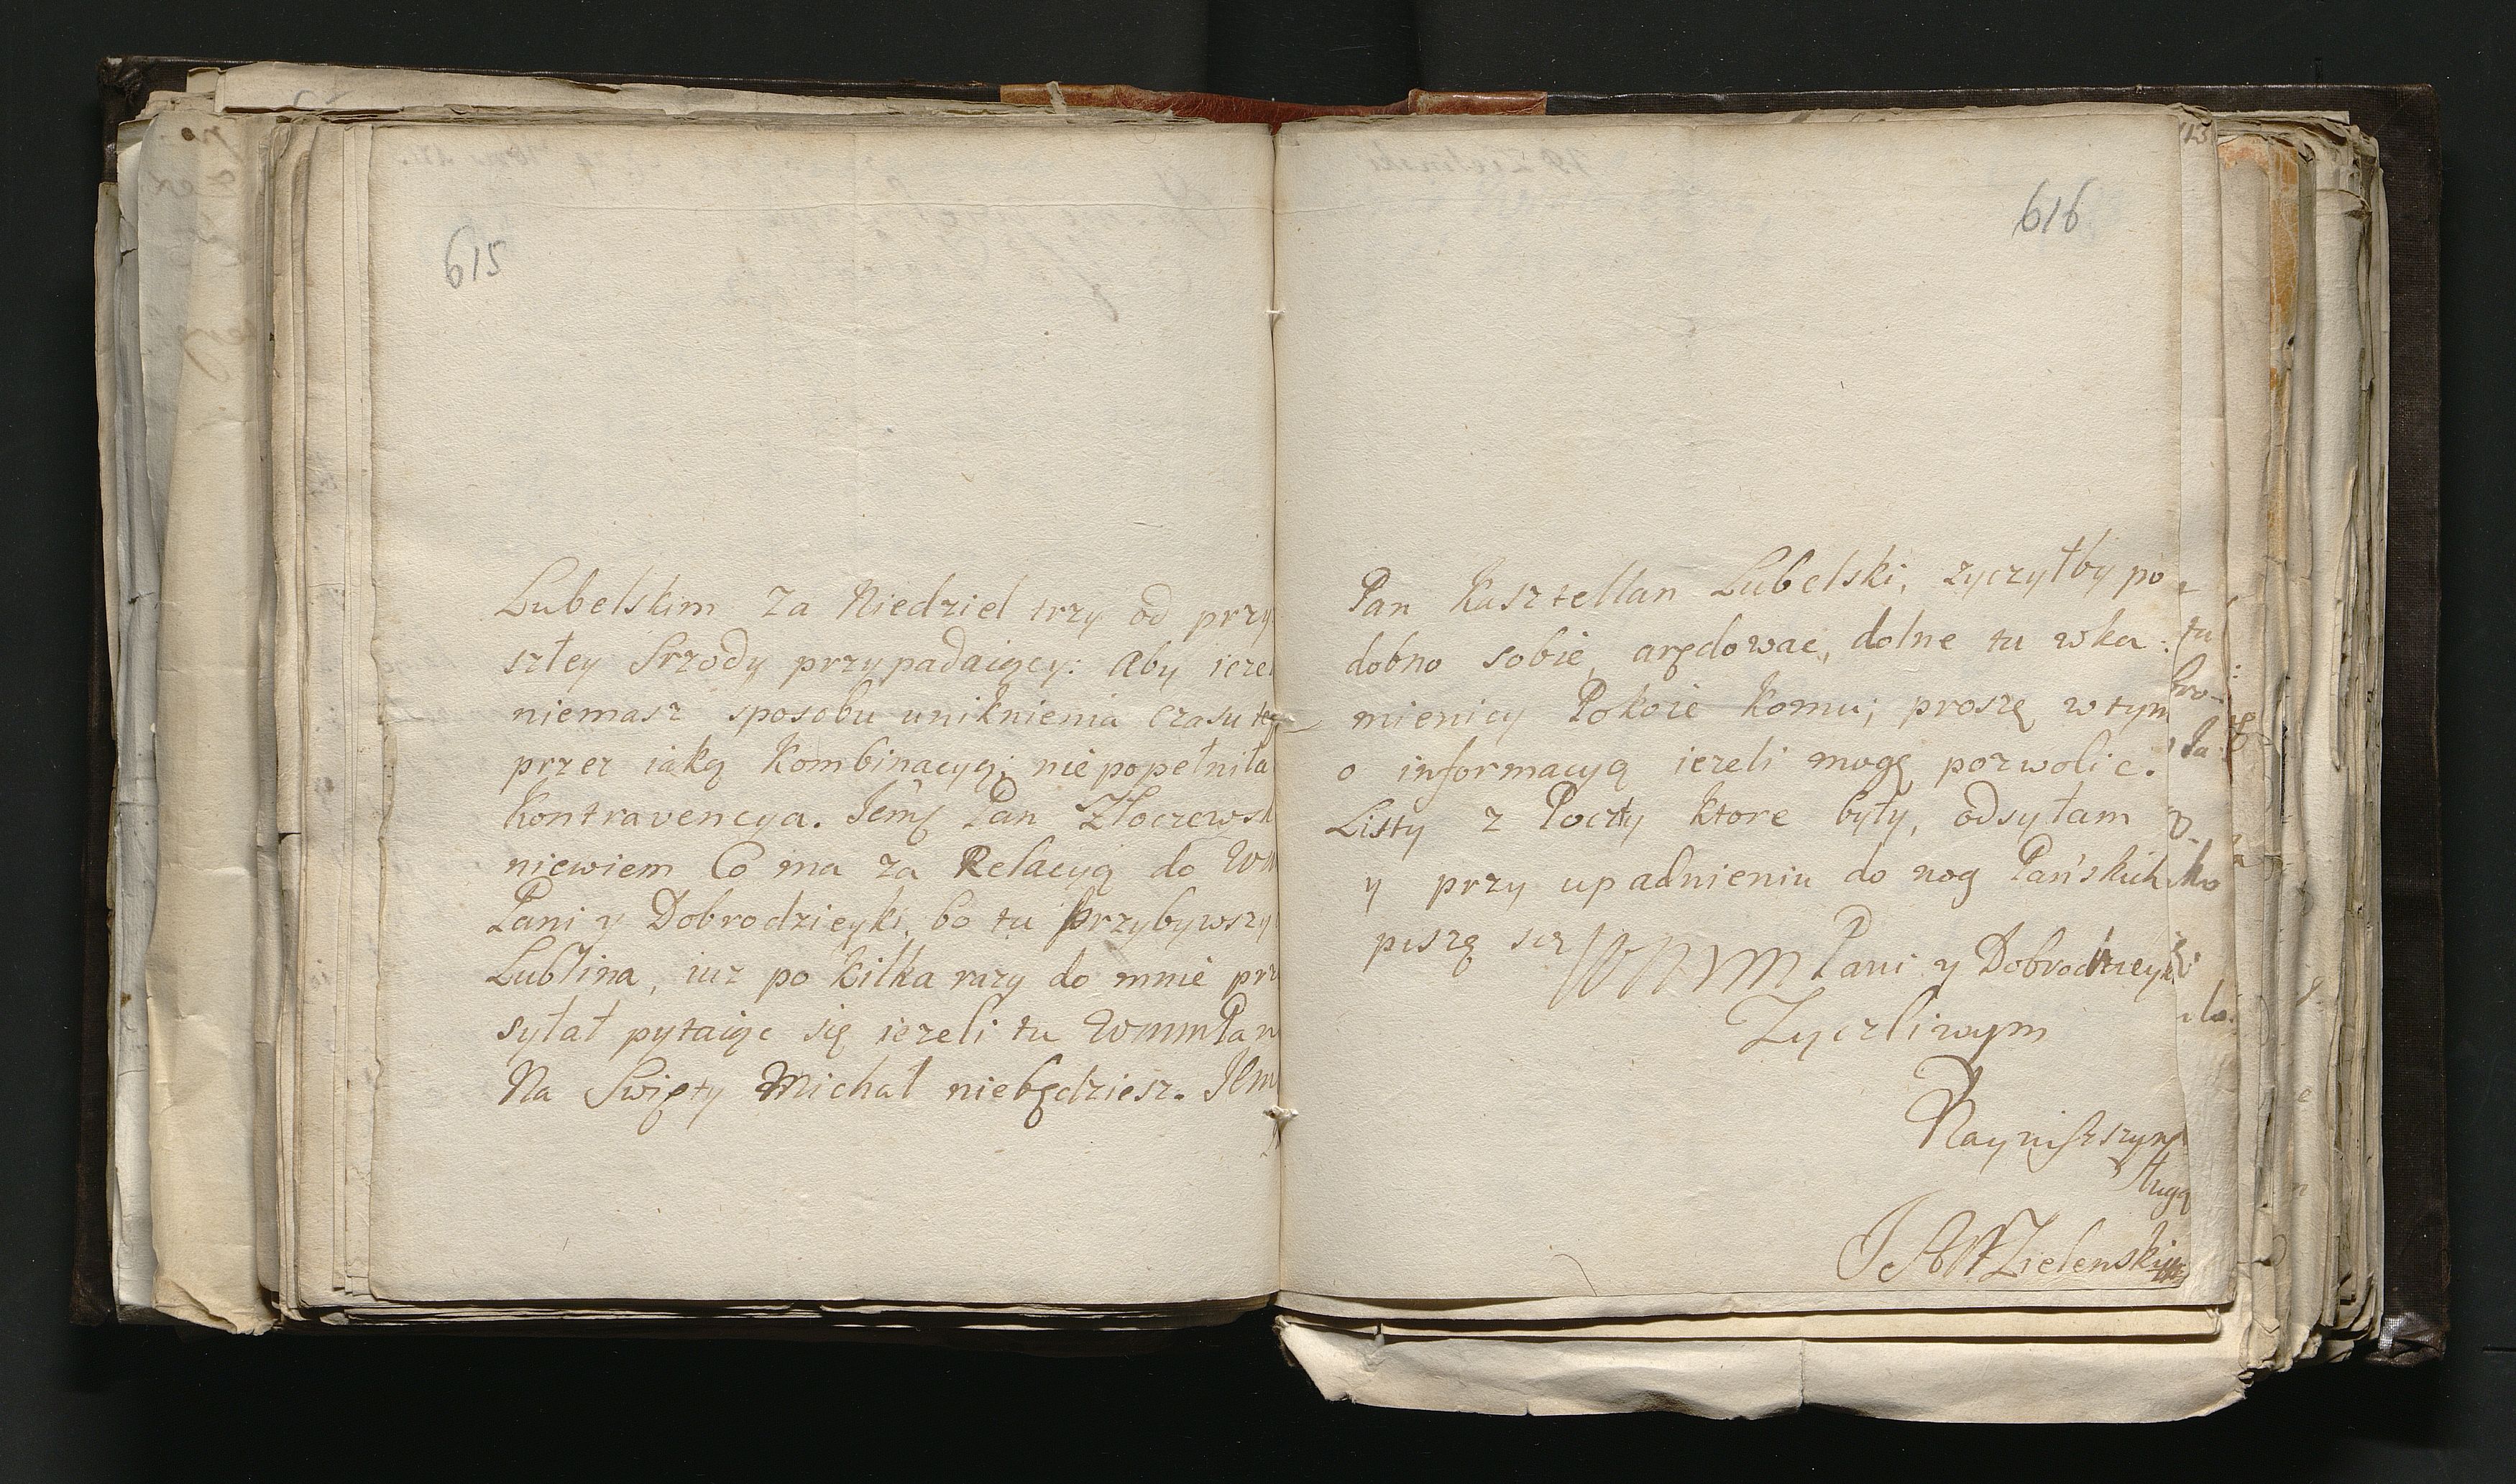 615
Lubelskim za Niedziel trzy od przy
szłey Srzody przypadaiącey: aby ieże
niemasz sposobu uniknienia czasu teg
przez iaką Kombinacyą; nie popełniła
Kontravencya. Jemć Pan Złoczewsk
niewiem Co ma za Relacyą do WM
Pani y Dobrodzieyki, bo tu przybywszy
Lublina, iuz po kilka razy do mnie prz
syłał pytaiąc się iezeli tu WMMPan
Na Swięty Michał niebędziesz. Jem
616
Pan Kasztellan Lubelski, zyczyłby po
dobno sobie, arędowac, dolne tu w ka:
mienicy Pokoie komu; proszę w tym
o informacyą iezeli mogę pozwolic.
Listy z Poczty ktore były, odsyłam
y przy upadnieniu do nog Pańskich
piszę się WMM Pani y Dobrodzieyki
Zyczliwym
Nayniższym
sługą
JAWZielenski